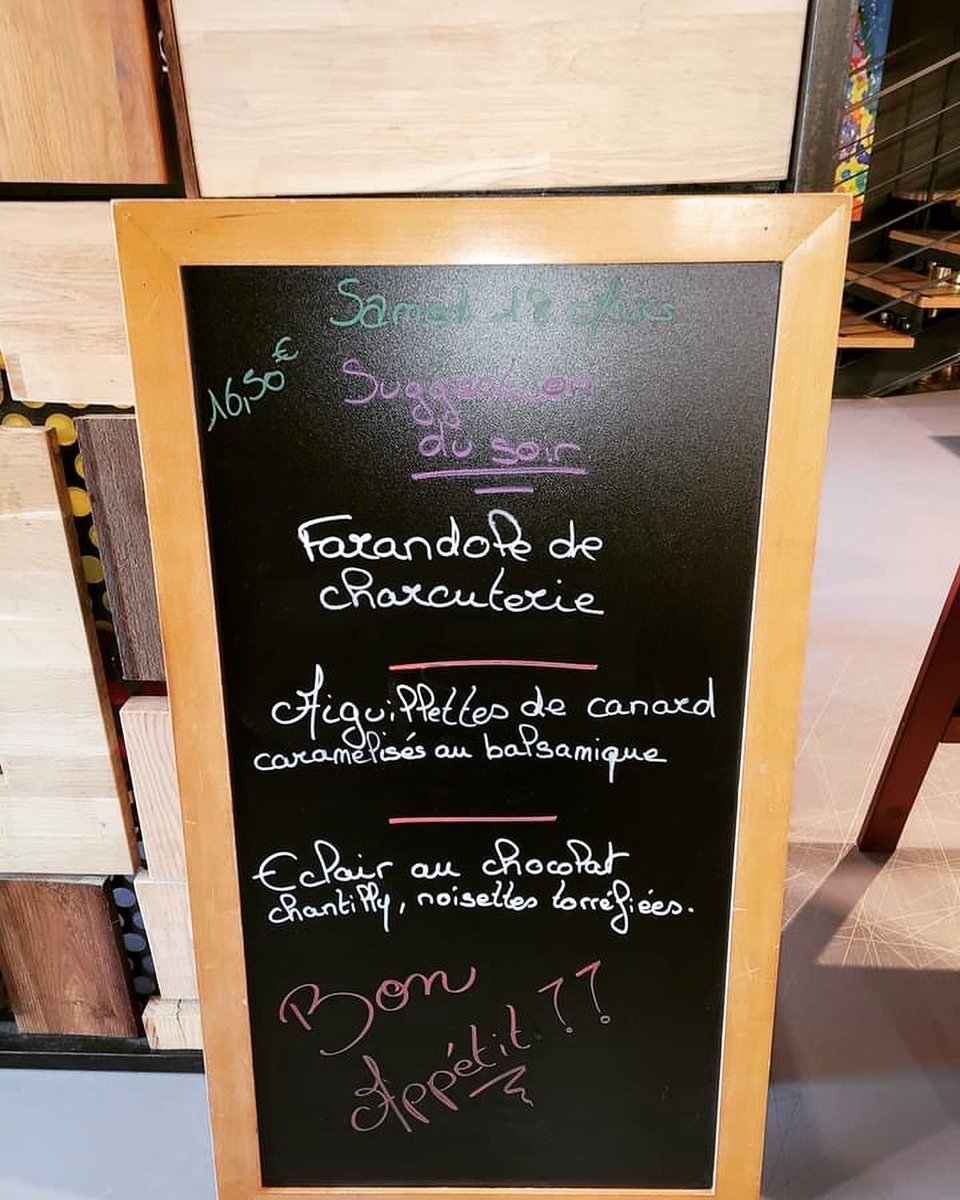 Samedi 18 Mars
16,50€
Suggestion
du soir
Farandole de
charcuterie
Aiguillettes de canard
caramelisés au balsamique
Eclair au chocolat
chantilly, noisettes torréfiées.
Bon
Appétit ??